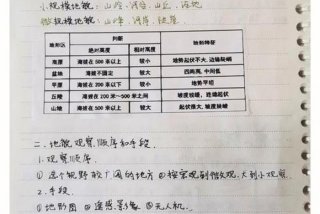 小规模地貌：山岭、河岸、山丘、洼地
微规模地貌：山峰、河岸、陡崖
地形区 判断 地势特征
绝对高度 相对高度
高原 海拔在 500 米以上 较小 地势起伏不大，边缘陡峭
盆地 海拔不固定 较大 四周高，中间低
平原 海拔在 200 米以下 较小 地势平坦
丘陵 海拔在 200 米～500 米之间 较小 坡度较缓，连绵起伏
山地 海拔在 500 米以上 较大 起伏很大，坡度陡峻
二、地貌观察顺序和手段
1.观察顺序
①选个视野较广阔的地方 ②按宏观到微观，大到小观察
2.手段
①地形图 ②遥感影像 ③无人机